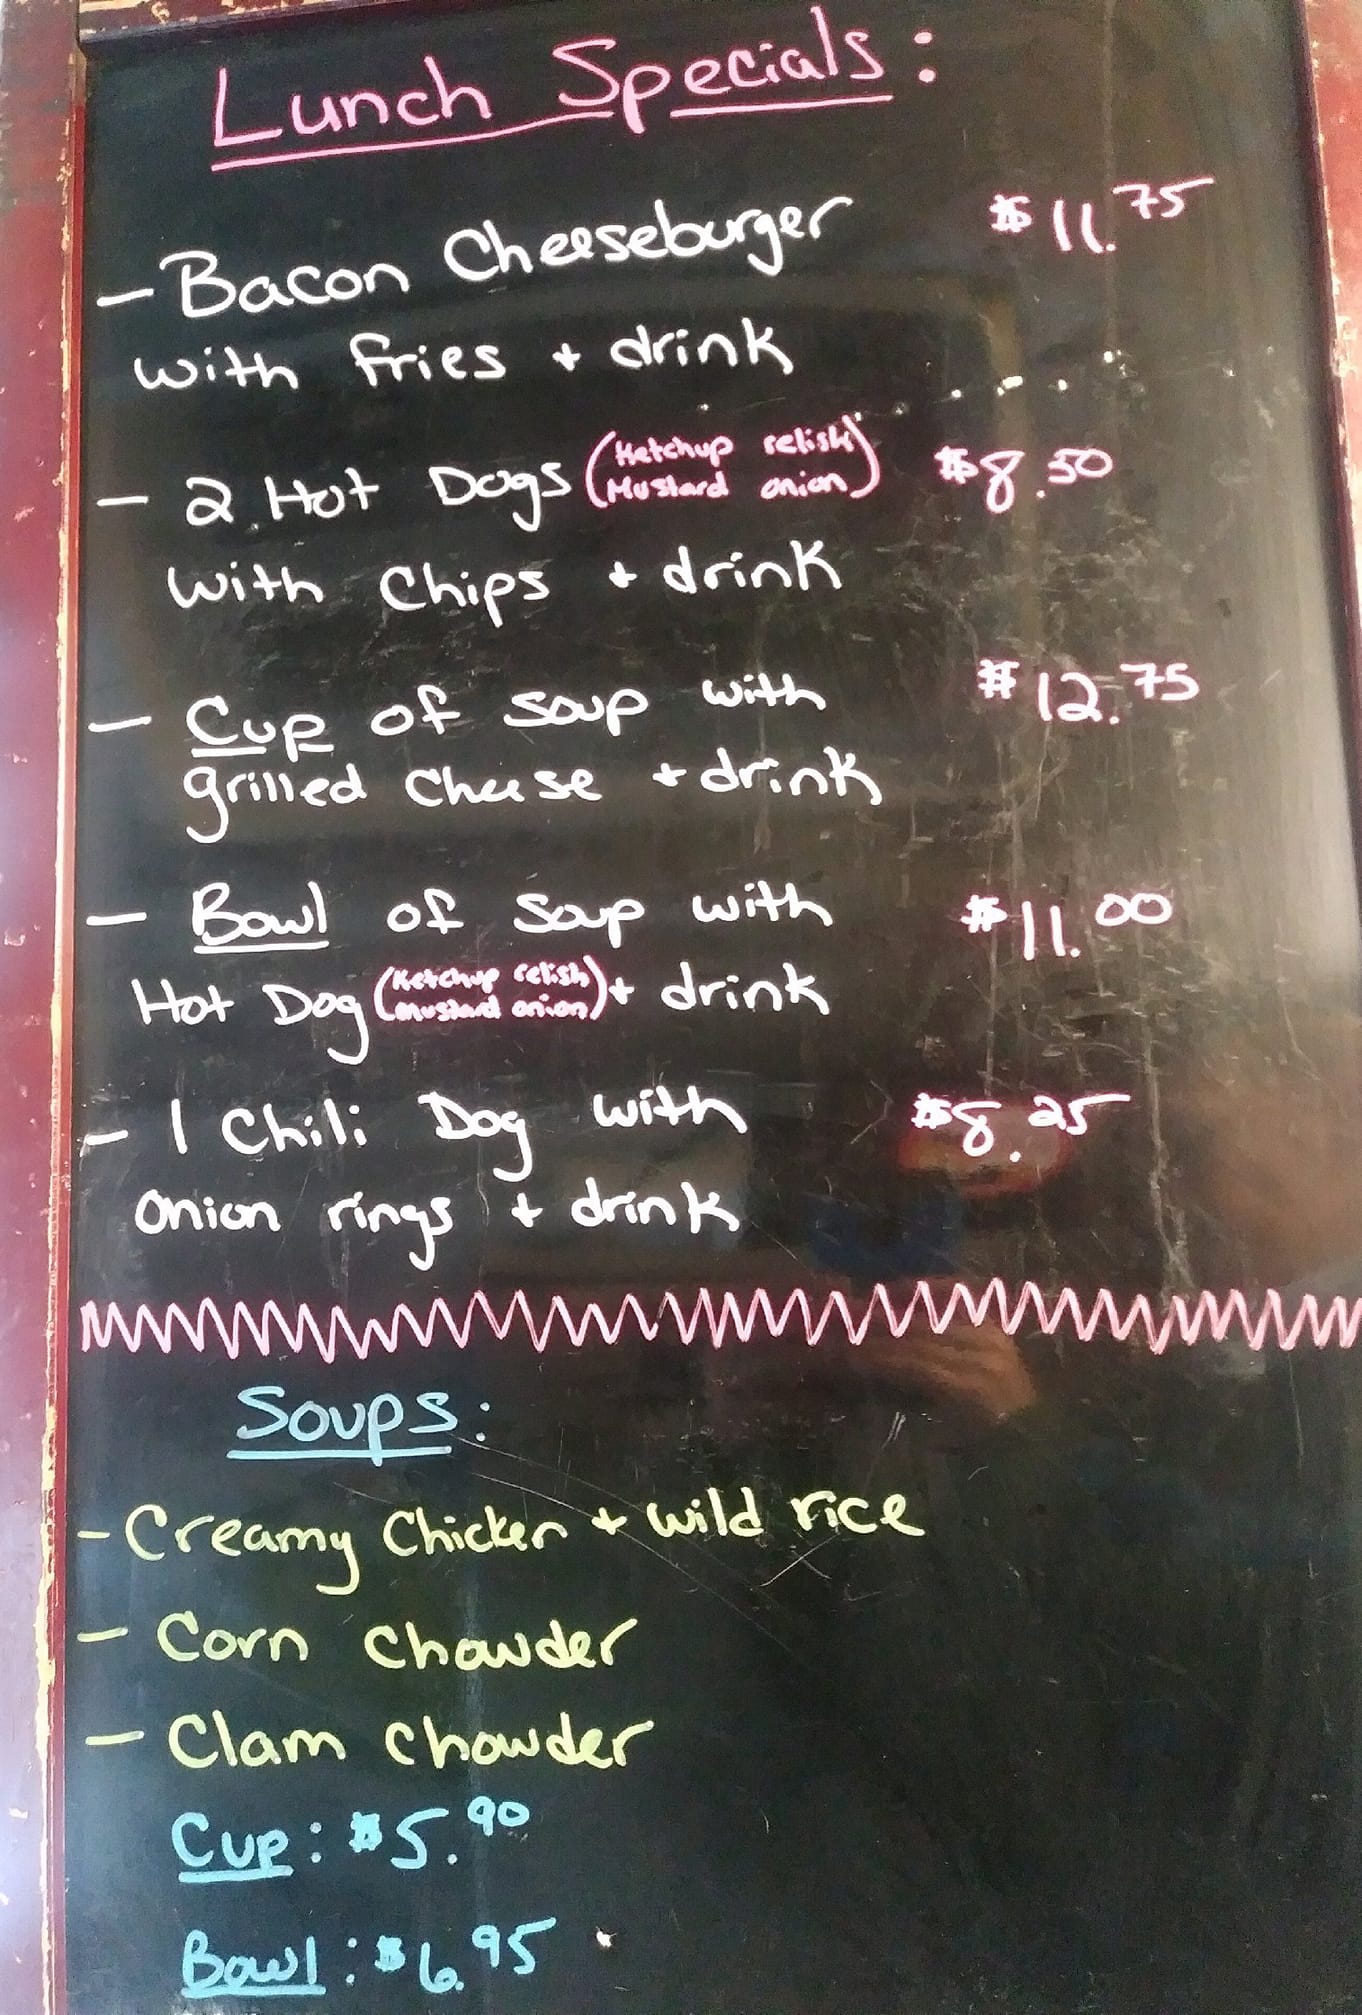 Lunch Specials:
- Bacon Cheeseburger $11.75
with fries + drink
- 2 Hot Dogs (Ketchup relish Mustard onion) $8.50
with Chips + drink
- Cup of Soup with $12.75
grilled Cheese + drink
- Bowl of Soup with $11.00
Hot Dog (Ketchup relish Mustard onion) + drink
- 1 Chili Dog with $8.25
Onion rings + drink
Soups:
- Creamy Chicken + wild rice
- Corn Chowder
- Clam Chowder
Cup: $5.90
Bowl: $6.95